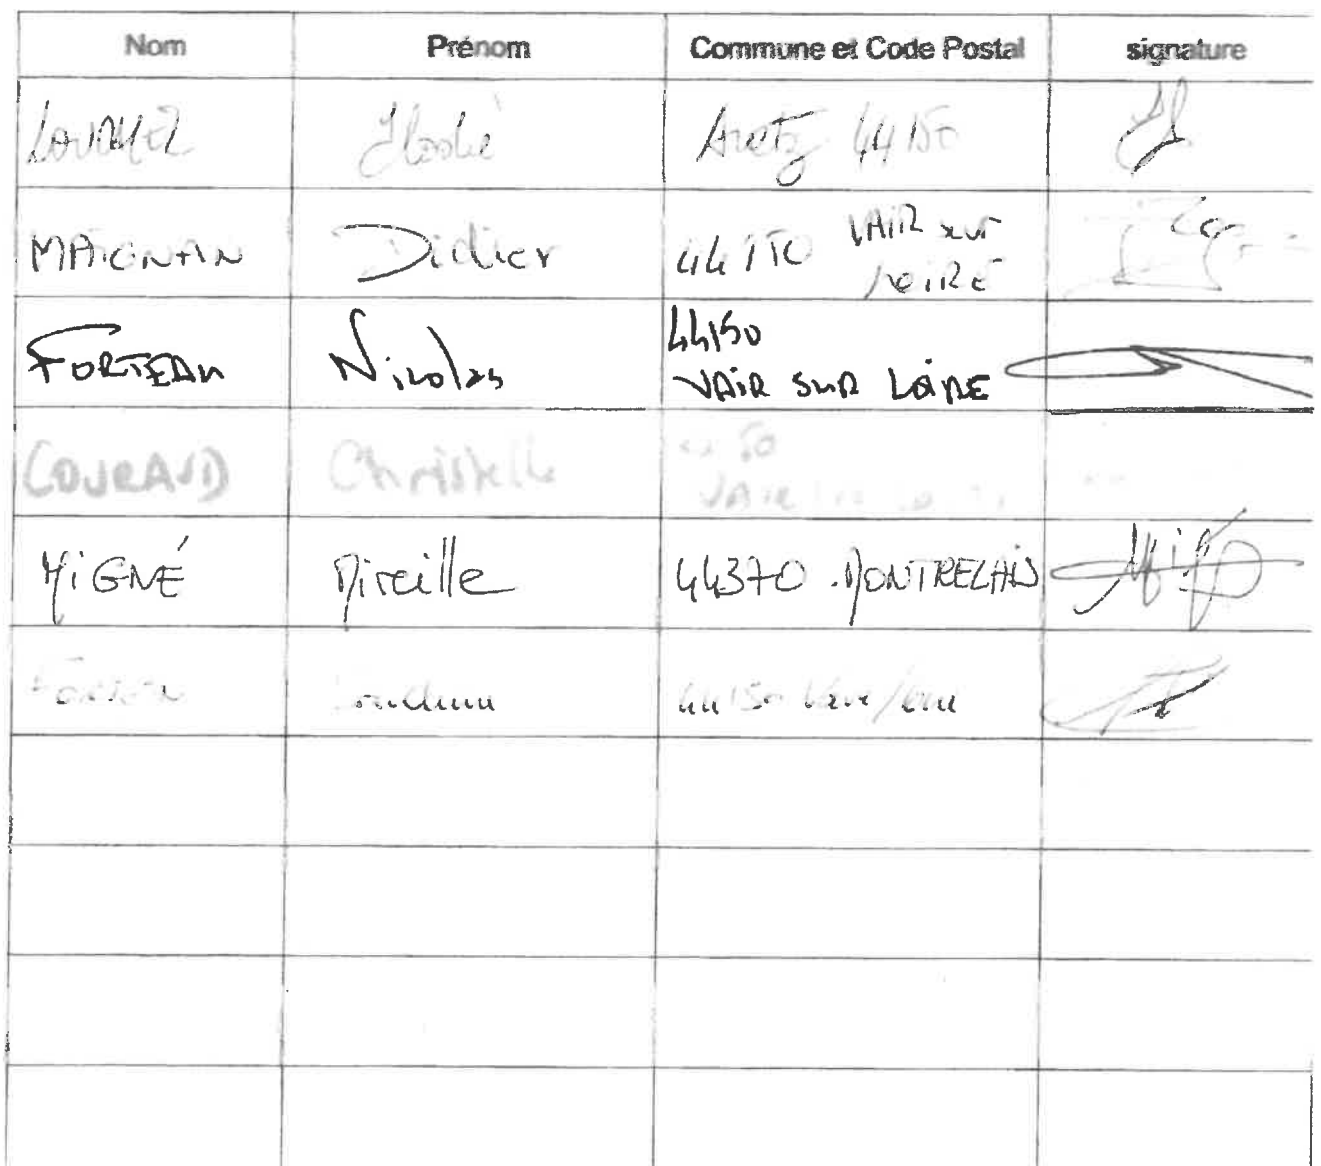 Nom Prénom Commune et Code Postal signature
44150
MAIGNAN Didier 44150 VAIR sur
LOIRE
FORTEAU Nicolas 44150
VAIR SUR LOIRE
COURAUD Christelle 50
VAIR
MIGNÉ Mireille 44370 . MONTRELAIS
44150 Vair/Loire